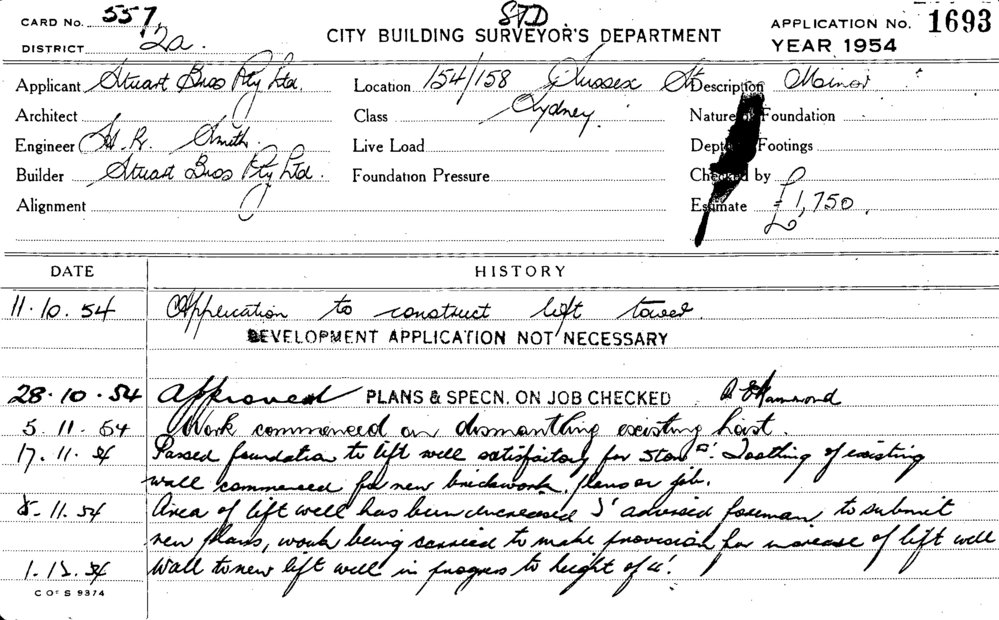 CARD No. 557.
STD
APPLICATION No. 1693
DISTRICT 2a.
CITY BUILDING SURVEYOR'S DEPARTMENT
YEAR 1954
Applicant Stuart Bros Pty Ltd. Location 154/158 Sussex St Description Minor
Architect Class Sydney. Nature of Foundation
Engineer H. R. Smith. Live Load Depth Footings
Builder Stuart Bros Pty Ltd. Foundation Pressure Checked by
Alignment Estimate £1,750.
DATE HISTORY
11.10.54 Application to construct lift tower.
DEVELOPMENT APPLICATION NOT NECESSARY
28.10.54 Approved PLANS & SPECN. ON JOB CHECKED Hammond
5.11.54 Work commenced on dismantling existing hoist.
17.11.54 Passed foundation to lift well satisfactory for Toothing of existing
wall commenced for new brickwork, plans on job.
.11.54 Area of lift well has been I advised foreman to submit
new plans, work being carried to make provision for increase of lift well
1.12.54 Wall to new lift well in progress to height of
C OF S 9374